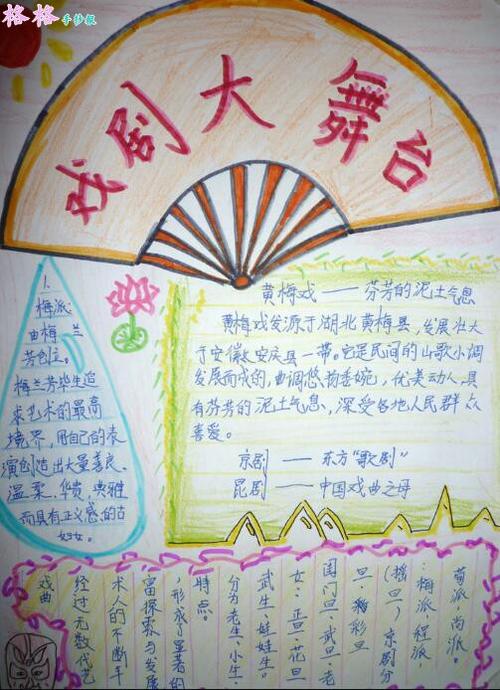 格格手抄报
戏剧大舞台
1.
梅派:
由梅兰
芳创立。
梅兰芳毕生追
求艺术的最高
境界,用自己的表
演创造出大量善良、
温柔、华贵、典雅
而具有正义感的古
妇女。
黄梅戏——芬芳的泥土气息
黄梅戏发源于湖北黄梅县,发展壮大
于安徽安庆县一带。它是民间的山歌小调
发展而成的,曲调悠扬委婉,优美动人,具
有芬芳的泥土气息,深受各地人民群众
喜爱。
京剧——东方“歌剧”
昆剧——中国戏曲之母
戏曲
经过无数代艺
术人的不断丰
富探索与发展
,形成了显著的
特点。
分为老生、小生、
武生、娃娃生。
女:正旦、花旦
闺门旦、武旦、老
旦、彩旦
(摇旦)京剧分
:梅派、程派、
荀派、尚派。